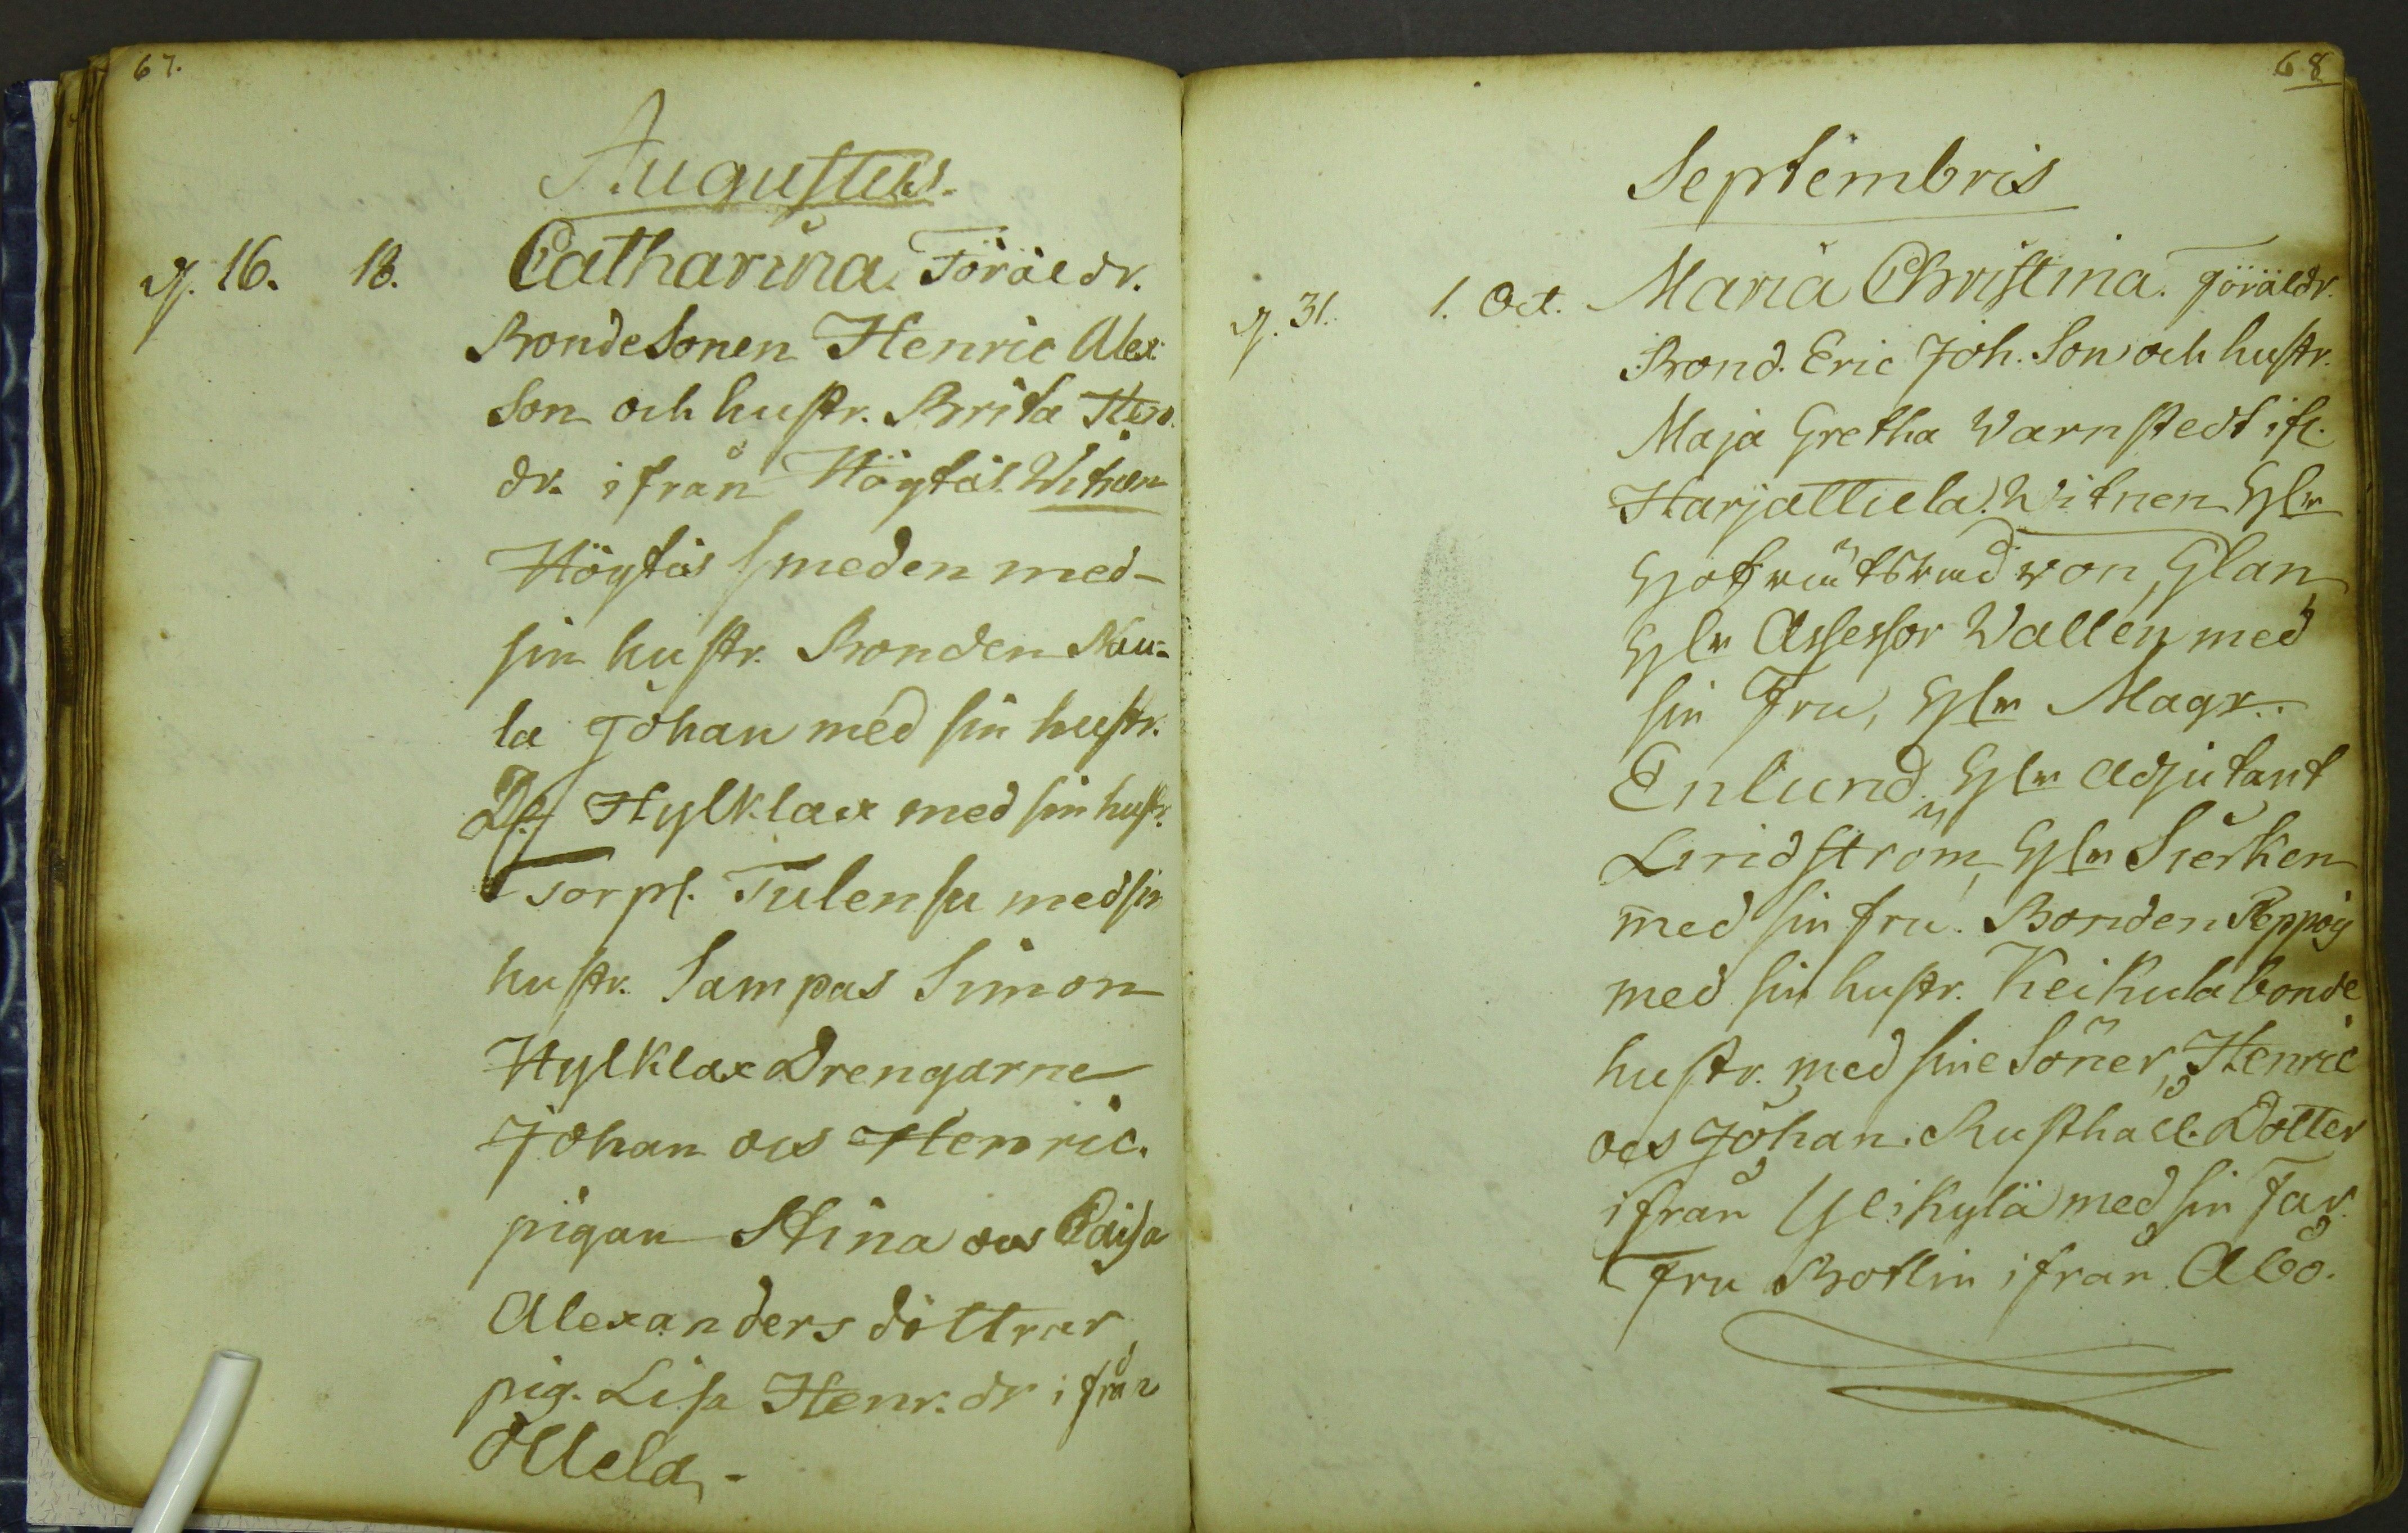 67.
Augustus.
d. 16. 18. Catharina. Föräldr.
Bondesonen Henric Alex:
Son och hustr. Brita Hen.
dr. ifrån Höytis. Witnen
Höytis Smeden med
sin hustr. Bonden Nau-
la Johan med sin hustr.
Hylklax med sin hustr.
Torp. Tulensu med sin
hustr. Sampas Simon
Hylklax Drengarne
Johan ocs Henric.
pigan Stina ocs Caisa
Alexanders döttrar,
pig. Lisa Henr. dr ifrån
Ollela.
68
Septembris
d. 31. 1. Oct. Maria Christina. Föräldr.
Bond. Eric Joh. Son och hustr.
Maja Gretha Warnstedt if.
Harjattula. Witnen Hr
von Glan,
Hr Assessor Wallen med
sin Fru, Hr Magr.
Enlund, Hr Adjutant
Lindström, Hr Sierken
med sin fru. Bonden Peppoij
med sin hustr. Keikula bonde
hustr. med sine Söner, Henric
ocs Johan. Rusthåll. Dotter
ifrån Ylikylä med sin Far.
Fru Bottin ifrån Åbo.